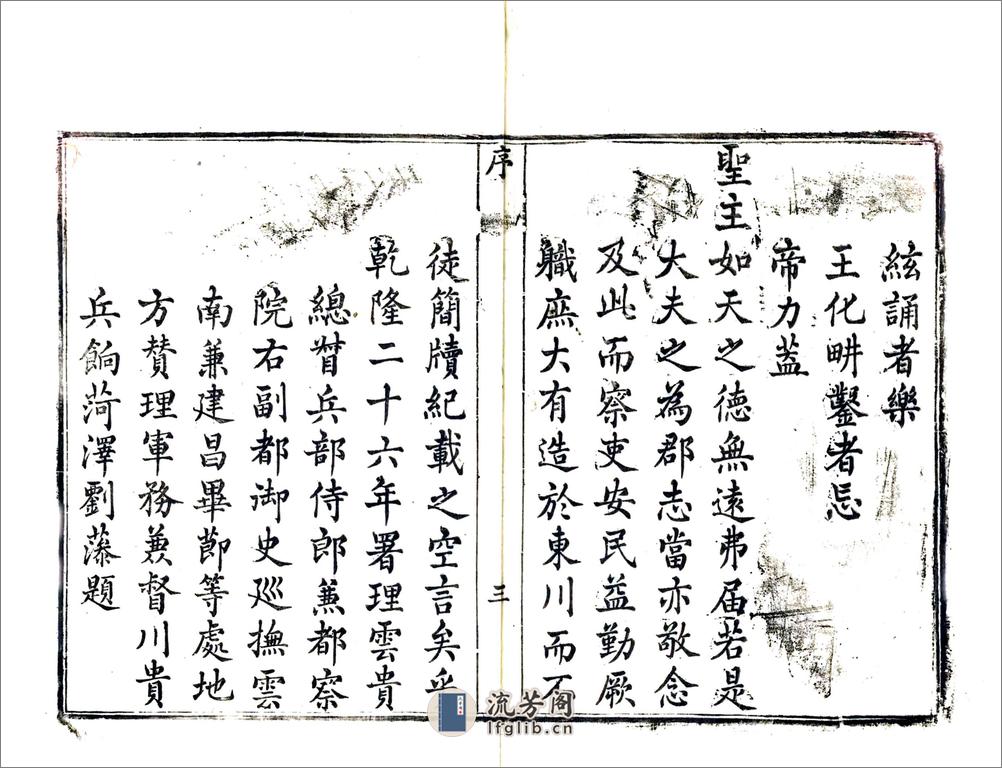 絃誦者樂
王化畊鑿者忘
帝力蓋
聖主如天之德無遠弗届若是
大夫之為郡志當亦敬念
及此而察吏安民益勤厥
職庶大有造於東川而不
序
三
徒簡牘紀載之空言矣乎
乾隆二十六年署理雲貴
總督兵部侍郎蒹都察
院右副都御史廵撫雲
南蒹建昌畢節等處地
方贊理軍務蒹督川貴
兵餉菏澤劉藻題
流芳阁
lfglib.cn